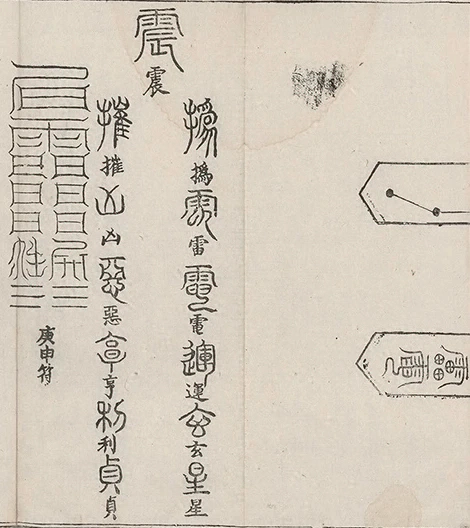 撝撝雷雷電電運運玄玄星星
震震
摧摧凶凶惡惡亨亨利利貞貞
庚申符